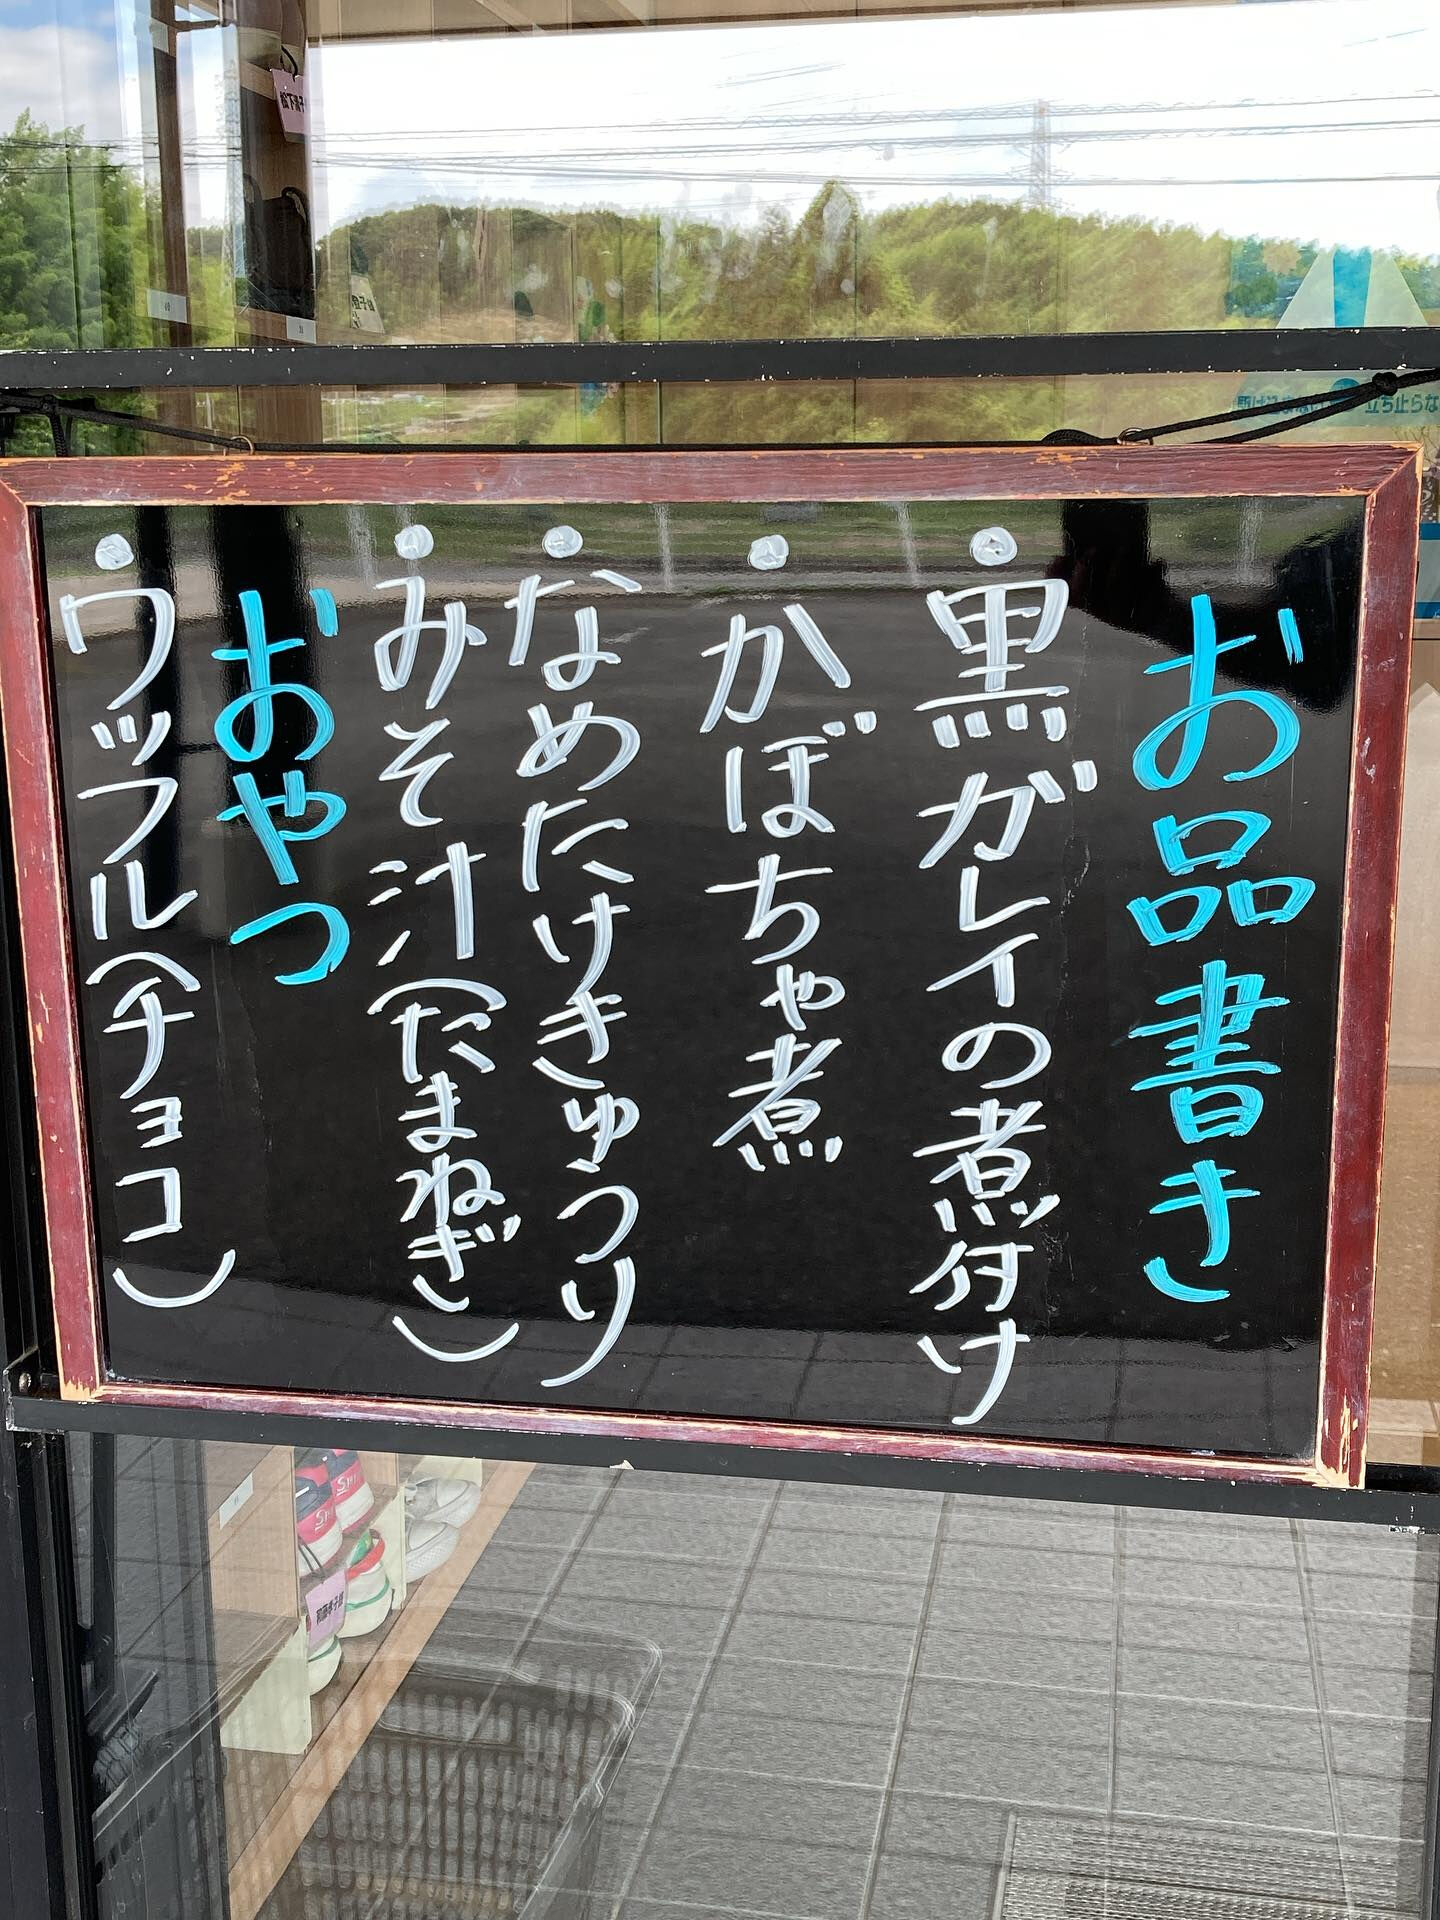 お品書き
・黒ガレイの煮付け
・かぼちゃ煮
・なめたけきゅうり
・みそ汁(たまねぎ)
おやつ
・ワッフル(チョコ)
立ち止らな